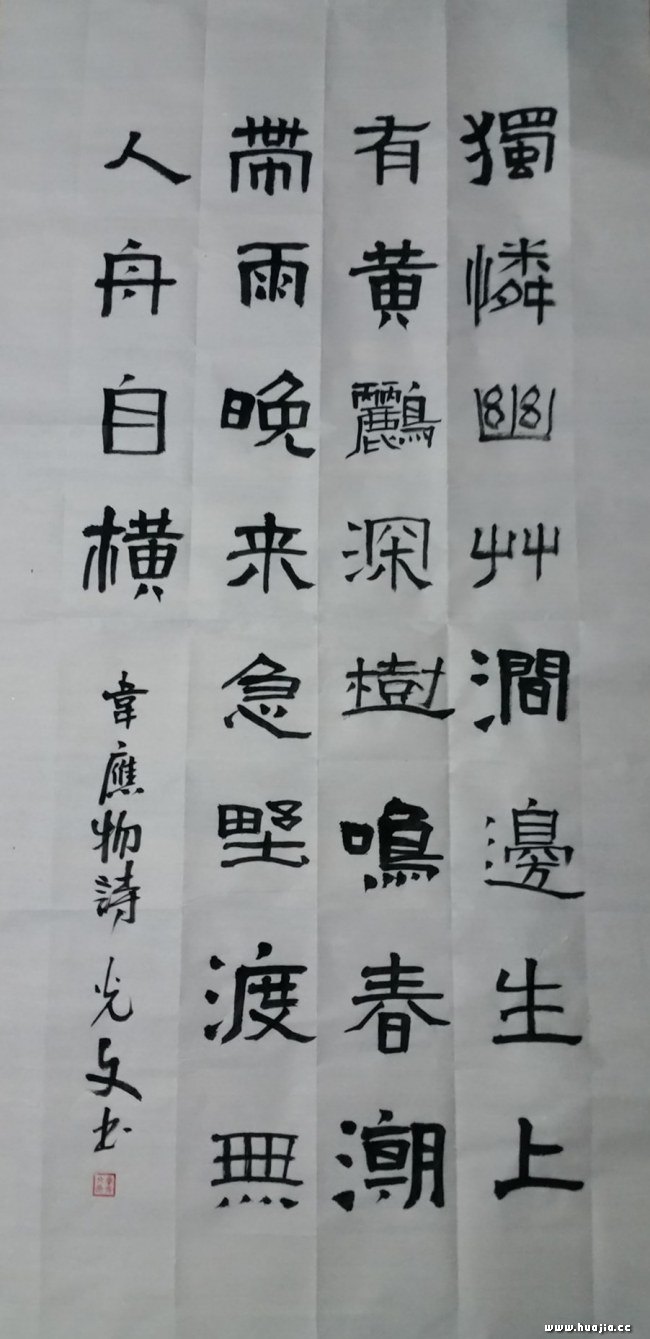 獨憐幽艸澗邊生上
有黄鸝深樹鳴春潮
帶雨晚来急野渡無
人舟自橫
韋應物詩 光文书
www.huajia.cc